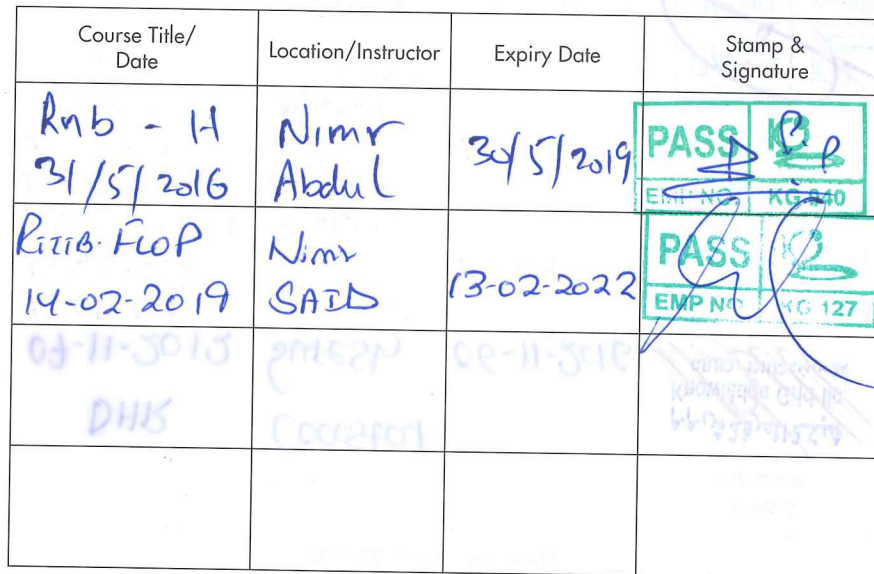 Course Title/
Date
Location/Instructor
Expiry Date
Stamp &
Signature
Rnb - H
31/5/2016
Nimr
Abdul
30/5/2019
PASS
EMP NO. KG 040
14-02-2019
Nimr
SAID
13-02-2022
PASS
EMP NO KG 127